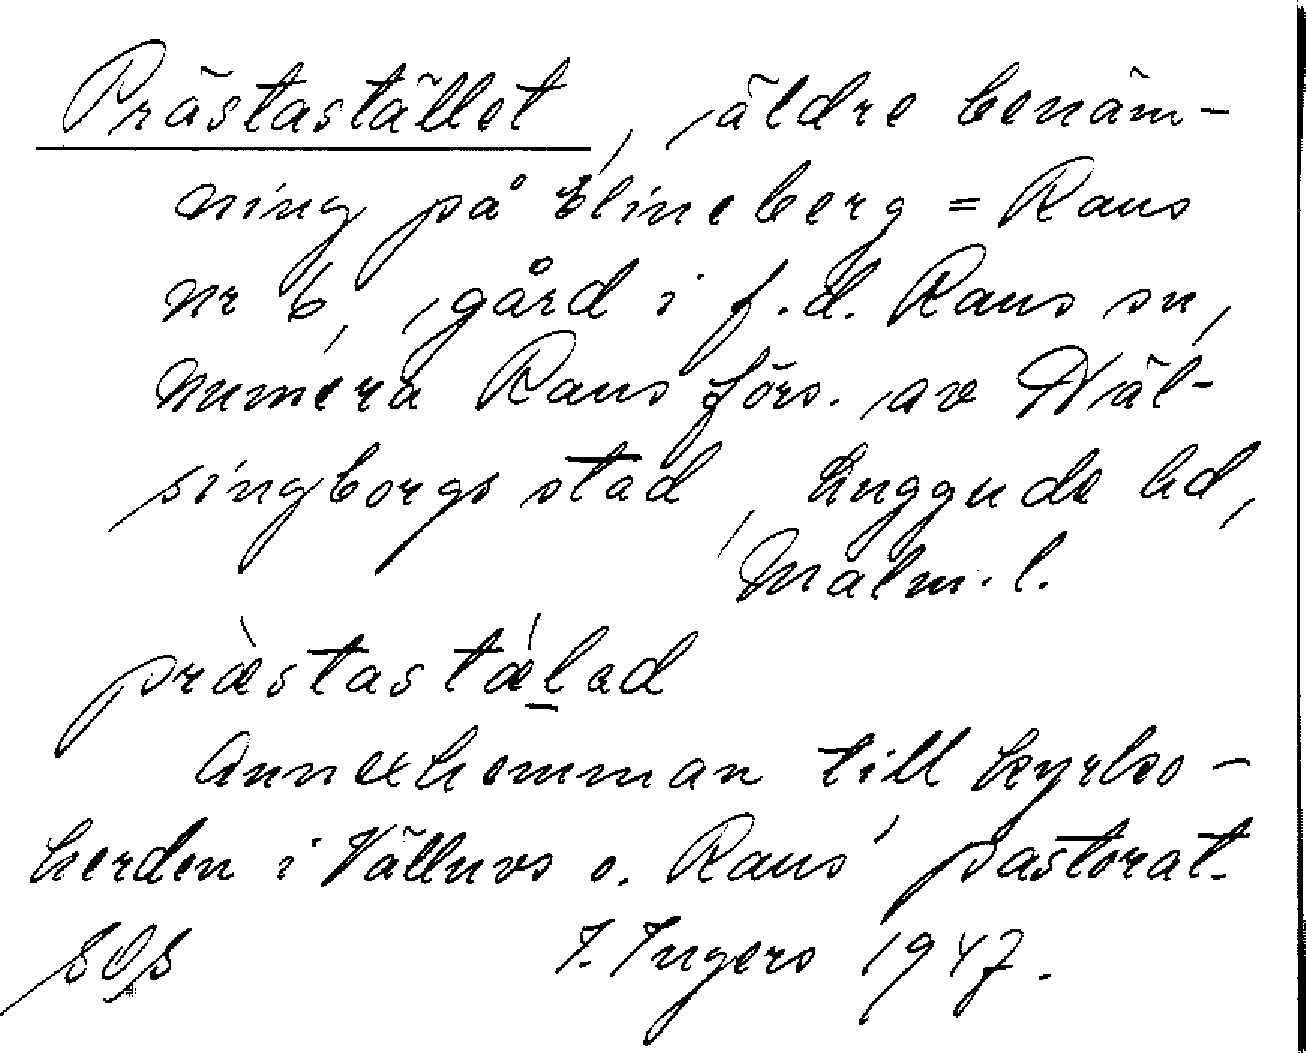 Prästastället, äldre benäm-
ning på Elineberg = Raus
nr 6, gård i f.d. Raus sn,
numera Raus förs. av Häl-
singborgs stad, Luggude hd,
Malm. l.
prὰstastǽlad
Annexhemman till kyrko-
herden i Välluvs o. Raus' pastorat.
I. Ingers 1947.